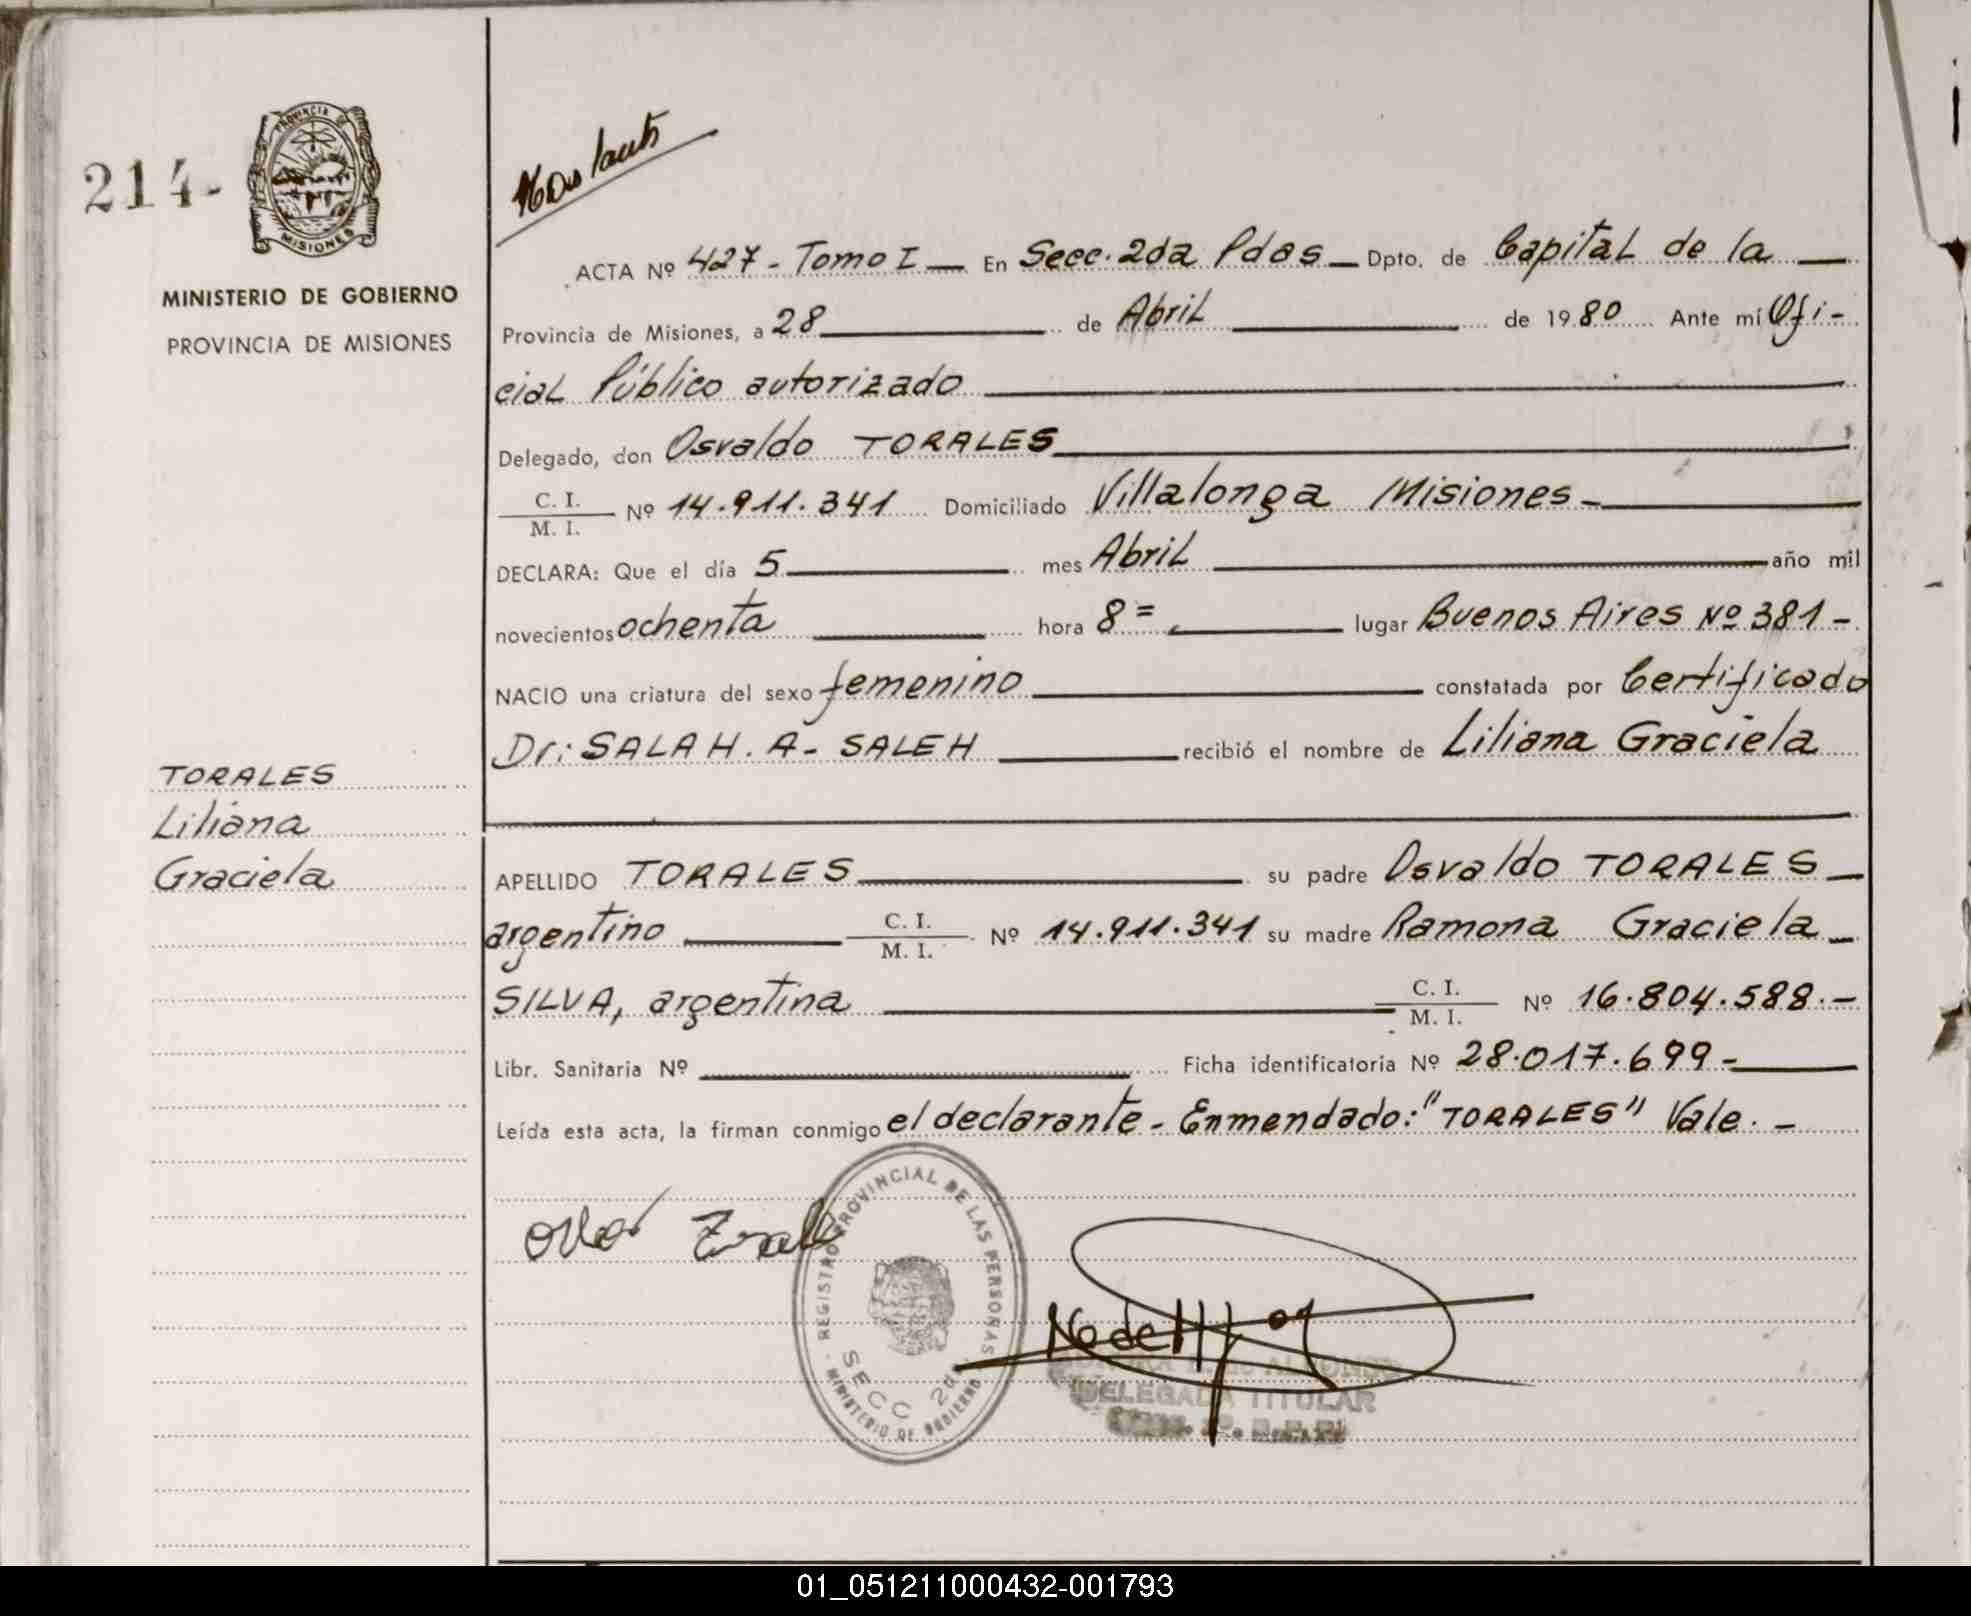 214-
PROVINCIA DE
MISIONES
MINISTERIO DE GOBIERNO
PROVINCIA DE MISIONES
TORALES
Liliana
Graciela
ACTA Nº 427 - Tomo I — En Secc. 2da Pdas — Dpto. de Capital de la —
Provincia de Misiones, a 28 de Abril de 1980 Ante mí Ofi-
cial Público autorizado
Delegado, don Osvaldo TORALES
C. I. / M. I. Nº 14.911.341 Domiciliado Villalonga Misiones -
DECLARA: Que el día 5 mes Abril año mil
novecientos ochenta hora 8= lugar Buenos Aires Nº 381 -
NACIO una criatura del sexo femenino constatada por Certificado
Dr: SALAH. A- SALEH recibió el nombre de Liliana Graciela
APELLIDO TORALES su padre Osvaldo TORALES —
argentino C. I. / M. I. Nº 14.911.341 su madre Ramona Graciela -
SILVA, argentina C. I. / M. I. Nº 16.804.588.-
Libr. Sanitaria Nº Ficha identificatoria Nº 28.017.699-
Leída esta acta, la firman conmigo el declarante - Enmendado: "TORALES" Vale. -
REGISTRO PROVINCIAL DE LAS PERSONAS
SECC 2da
MINISTERIO DE GOBIERNO
DELEGADA TITULAR
01_051211000432-001793